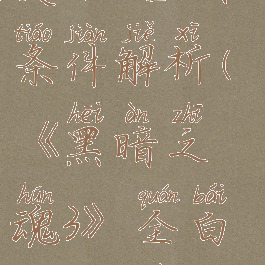 tiáo jiàn jiě xī
条件解析(
hēi àn zhī
《黑暗之
hún quán bái
魂3》全白